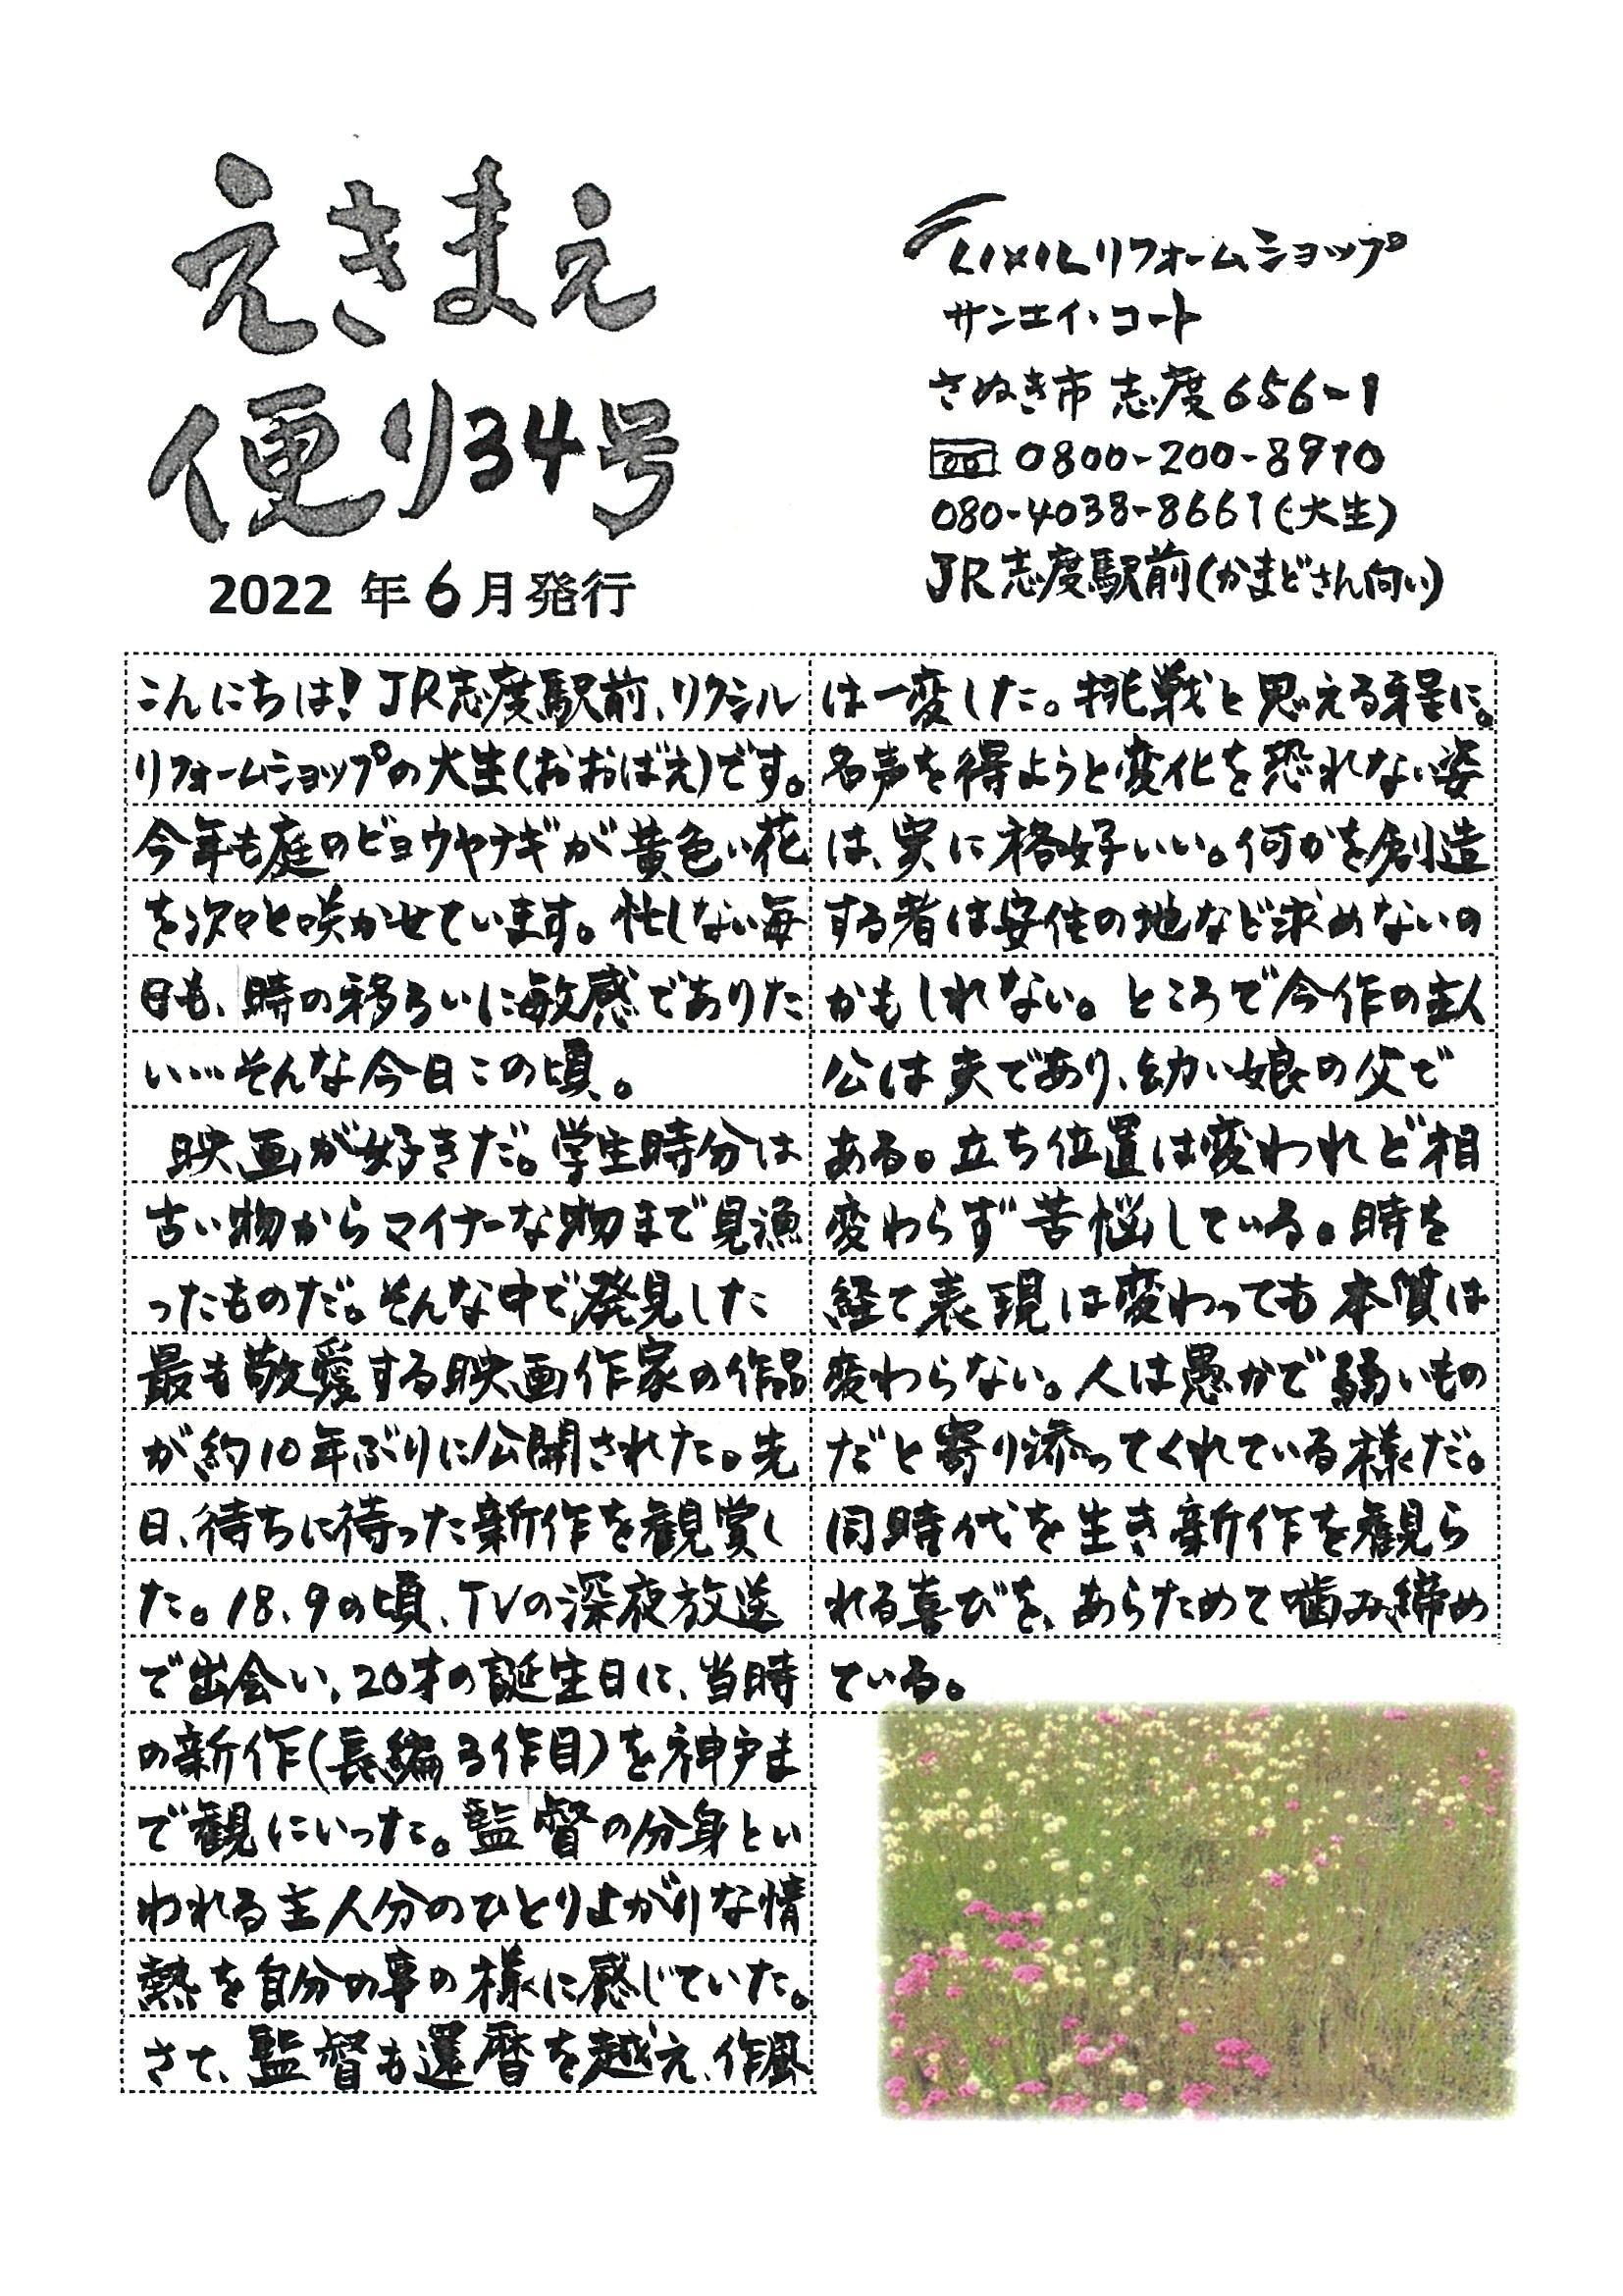 えきまえ
便り34号
2022 年6月発行
LIXILリフォームショップ
サンエイ・コート
さぬき市志度656-1
0800-200-8970
080-4038-8661(大生)
JR志度駅前(かまどさん向い)
こんにちは!JR志度駅前、リクシル
リフォームショップの大生(おおばえ)です。
今年も庭のビヨウヤナギが黄色い花
を次々と咲かせています。忙しない毎
日も、時の移ろいに敏感でありた
い…そんな今日この頃。
映画が好きだ。学生時分は
古い物からマイナーな物まで見漁
ったものだ。そんな中で発見した
最も敬愛する映画作家の作品
が約10年ぶりに公開された。先
日、待ちに待った新作を観賞し
た。18、9の頃、TVの深夜放送
で出会い、20才の誕生日に、当時
の新作(長編3作目)を神戸ま
で観にいった。監督の分身とい
われる主人公のひとりよがりな情
熱を自分の事の様に感じていた。
さて、監督も還暦を越え、作風
は一変した。挑戦と思える程に。
名声を得ようと変化を恐れない姿
は、実に格好いい。何かを創造
する者は安住の地など求めないの
かもしれない。ところで今作の主人
公は夫であり、幼い娘の父で
ある。立ち位置は変われど相
変わらず苦悩している。時を
経て表現は変わっても本質は
変わらない。人は愚かで弱いもの
だと寄り添ってくれている様だ。
同時代を生き新作を観ら
れる喜びを、あらためて噛み締め
ている。